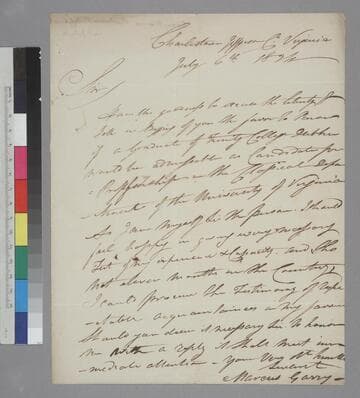 Charlestown Jefferson Co Virginia
July 6th 1824
Sir
I am the
to beg of you the favor to know
if a Graduate of Trinity College Dublin
would be admissable as Candidate for
Professorship in the Classical Depa
-ment of the University of Virginia
As I am myself the Person I should
feel happy in giving every necessary
of my experience & Capacity. and tho
not eleven Months in the Country
I can procure the Testimony of respe
-ctable acquaintances in my favor
Should you deem it necessary to honour
me with a reply it shall meet imm
-mediate attention - your Very Ob humble
Servant
Marcus Garry